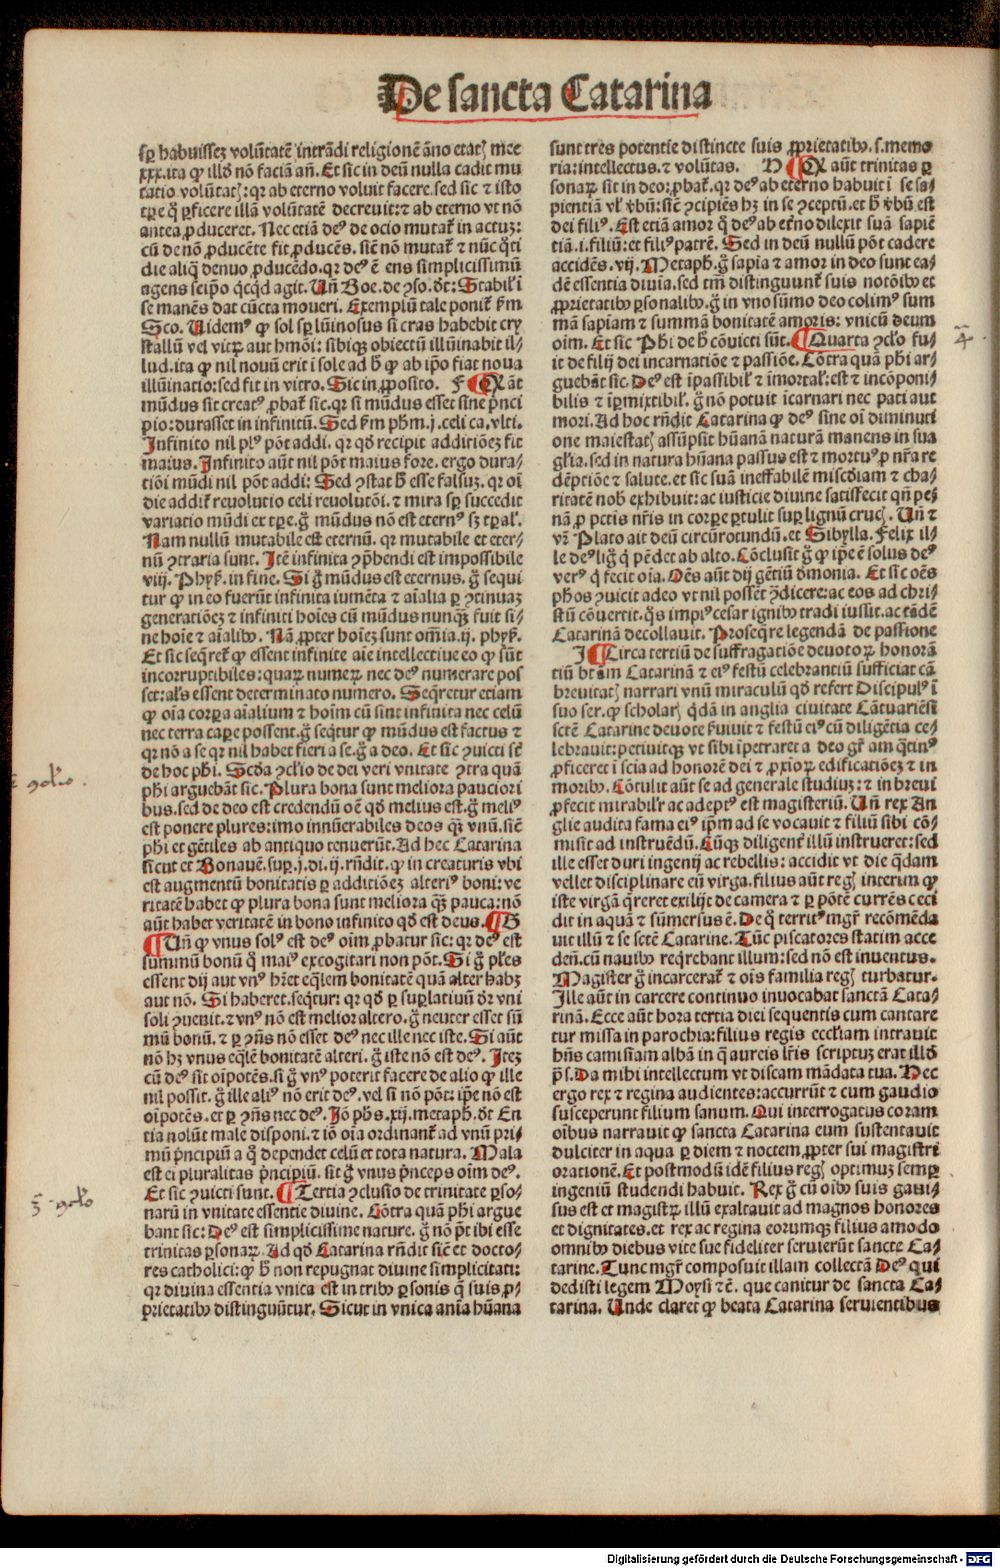 De sancta Catarina
sꝑ habuissez volūtatē intrādi religionē āno etatꝭ mee
xxx. ita ꝙ illḋ nō faciā añ. Et sic in deū nulla cadit mu
tatio volūtatꝭ: qꝛ ab eterno voluit facere. sed sic ⁊ isto
tꝑe q̄ ꝑficere illā volūtatē decreuit: ⁊ ab eterno vt nō
antea ꝓduceret. Nec etiā deꝰ de ocio mutat̄ in actuz:
cū de nō ꝓducēte fit ꝓducēs. sicē nō mutat̄ ⁊ nūc q̄ti
die aliq̄ denuo ꝓducēdo. qꝛ deꝰ ē ens simplicissimū
agens seipo qcqd agit. Uñ Boe. de ꝯso. dt: Stabilꝭ ī
se manēs dat cūcta moueri. Exemplū tale ponit̄ ẜm
Sco. Uidemꝰ ꝙ sol sꝑ lūinosus si cras habebit cry
stallū vel vitꝝ aut hmōi: sibiqꝫ obiectū illūinabit il-
lud. ita ꝙ nil nouū erit i sole ad h̄ ꝙ ab ipō fiat noua
illūinatio: sed fit in vitro. Sic in ꝓposito. F ¶ Q āt
mūdus sit creatꝰ ꝓbat̄ sic. qꝛ si mūdus esset sine pͥnci
pio: durasset in infinitū. Sed ẜm phm. j. celi ca. vlti.
Infinito nil plꝰ pōt addi. qꝛ qḋ recipit additiōez fit
maius. Infinito aūt nil pōt maius fore. ergo dura-
tiōi mūdi nil pōt addi: Sed ꝯstat h̄ esse falsuz. qꝛ oī
die addit̄ reuolutio celi reuolutōi. ⁊ mira sꝑ succedit
variatio mūdi ex tꝑe. g̊ mūdus nō est eternꝰ sꝫ tꝑal̄.
Nam nullū mutabile est eternū. qꝛ mutabile et eter-
nū ꝯtraria sunt. Itē infinita ꝯp̄hendi est impossibile
viij. Phyẜ. in fine. Si g̊ mūdus est eternus. g̊ sequi
tur ꝙ in eo fuerūt infinita iumēta ⁊ aīalia ꝑ ꝯtinuaz
generatiōez ⁊ infiniti hoīes cū mūdus nunqꝫ fuit si-
ne hoīe ⁊ aīalibꝰ. Nā ꝓpter hoīez sunt om̄ia. ij. phyẜ.
Et sic seq̄ret̄ ꝙ essent infinite aīe intellectiue eo ꝙ sūt
incorruptibiles: quaꝝ numeꝝ nec deꝰ numerare pos
set: al̄s essent determinato numero. Seq̄retur etiam
ꝙ oīa corꝑa aīalium ⁊ hoīm cū sint infinita nec celū
nec terra caꝑe possent. g̊ seq̄tur ꝙ mūdus est factus ⁊
qꝛ nō a se qꝛ nil habet fieri a se. g̊ a deo. Et sic ꝯuicti sē
de hoc phi. Scḋa ꝯclīo de dei veri vnitate ꝯtra quā
phi arguebāt sic. Plura bona sunt meliora pauciori
bus. sed de deo est credendū oē qḋ melius est. g̊ meliꝰ
est ponere plures: imo innūerabiles deos qꝫ vnū. sicē
phi et gētiles ab antiquo tenuerūt. Ad hec Catarina
sicut et Bonauē. suꝑ. j. di. ij. rñdit. ꝙ in creaturis vbi
est augmentū bonitatis ꝑ additiōez alteriꝰ boni: ve
ritatē habet ꝙ plura bona sunt meliora qꝫ pauca: nō
aūt habet veritatē in bono infinito qḋ est deus. ¶ G
¶ Uñ ꝙ vnus solꝰ est deꝰ oīm ꝓbatur sic: qꝛ deꝰ est
summū bonū q̄ maiꝰ excogitari non pōt. Si g̊ plēs
essent dij aut vnꝰ hēt eq̄lem bonitatē quā alter habꝫ
aut nō. Si haberet. seq̄tur: qꝛ qḋ ꝑ suꝑlatiuū dr vni
soli ꝯuenit. ⁊ vnꝰ nō est melior altero. g̊ neuter esset sū
mū bonū. ⁊ ꝑ ꝯñs nō esset deꝰ nec ille nec iste. Si aūt
nō hꝫ vnus eq̄lē bonitatē alteri. g̊ iste nō est deꝰ. Itez
cū deꝰ sit oīpotēs. si g̊ vnꝰ poterit facere de alio ꝙ ille
nil possit. g̊ ille aliꝰ nō erit deꝰ. vel si nō pōt: ipē nō est
oīpotēs. et ꝑ ꝯñs nec deꝰ. Iō phs. xij. metaph. dt En
tia nolūt male disponi. ⁊ iō oīa ordinant̄ ad vnū pri-
mū pͥncipiū a q̄ dependet celū et tota natura. Mala
est ei pluralitas pͥncipiū. sit g̊ vnus pͥnceps oīm deꝰ.
Et sic ꝯuicti sunt. ¶ Tertia ꝯclusio de trinitate ꝑso-
narū in vnitate essentie diuine. Cōtra quā phi argue
bant sic: Deꝰ est simplicissime nature. g̊ nō pōt ibi esse
trinitas ꝑsonaꝝ. Ad qḋ Catarina rñdit sicē et docto-
res catholici: ꝙ h̄ non repugnat diuine simplicitati:
qꝛ diuina essentia vnica est in tribꝰ ꝑsonis q̄ suis ꝓ-
prietatibꝰ distinguūtur. Sicut in vnica anīa hūana
sunt trēs potentie distincte suis ꝓprietatibꝰ. s. memo
ria: intellectus. ⁊ volūtas. H ¶ Q aūt trinitas ꝑ
sonaꝝ sit in deo: ꝓbat̄. qꝛ deꝰ ab eterno habuit ī se sa-
pientiā vl̄ v̄bū: sicē ꝯcipiēs hꝫ in se ꝯceptū. et h̄ v̄bū est
dei filiꝰ. Est etiā amor q̄ deꝰ ab etīno dilexit suā sapiē
tiā. i. filiū: et filiꝰ patrē. Sed in deū nullū pōt cadere
accidēs. vij. Metaph. g̊ sapīa ⁊ amor in deo sunt ea-
dē essentia diuīa. sed tm̄ distinguunt̄ suis notōibꝰ et
ꝓprietatibꝰ ꝑsonalibꝰ. g̊ in vno sūmo deo colimꝰ sum
mā sapīam ⁊ summā bonitatē amoris: vnicū deum
oīm. Et sic Phi de h̄ cōuicti sūt. ¶ Quarta ꝯclō fu-
it de filij dei incarnatiōe ⁊ passiōe. Cōtra quā phi ar-
guebāt sic. Deꝰ est īpassibil̄ ⁊ īmortal̄: est ⁊ incōponi-
bilis ⁊ īꝑmixtibil̄. g̊ nō potuit īcarnari nec pati aut
mori. Ad hoc rñdit Catarina ꝙ deꝰ sine oī diminuti
one maiestatꝭ assūpsit hūanā naturā manens in sua
gl̄ia. sed in natura hūana passus est ⁊ mortuꝰ ꝓ nr̄a re
dēptiōe ⁊ salute. et sic suā ineffabilē miscḋiam ⁊ cha-
ritatē nob̄ exhibuit: ac iusticie diuine satisfecit qñ pe-
nā ꝓ pctis nr̄is in corꝑe ꝑtulit suꝑ lignū crucꝭ. Uñ ⁊
vn̄ Plato ait deū circūrotundū. et Sibylla. Felix il-
le deꝰ lig̊ q̄ pēdet ab alto. Cōclusit g̊ ꝙ ipē ē solus deꝰ
verꝰ q̄ fecit oīa. Oēs aūt dij gētiū dēmonia. Et sic oēs
phos ꝯuicit adeo vt nil possēt ꝯdicere: ac eos ad chri-
stū cōuertit. q̄s impiꝰ cesar ignibꝰ tradi iussit. ac tādē
Catarinā decollauit. Proseq̄re legendā de passione
I ¶ Circa tertiū de suffragatiōe deuotoꝝ honorā
tiū btām Catarinā ⁊ eiꝰ festū celebrantiū sufficiat cā
breuitatꝭ narrari vnū miraculū qḋ refert Discipulꝰ ī
suo ser. ꝙ scholarꝭ q̄dā in anglia ciuitate Cātuariēsi
sctē Catarine deuote ẜuiuit ⁊ festū eiꝰ cū diligētia ce-
lebrauit: petiuitqꝫ vt sibi īpetraret a deo gr̄am q̄tinꝰ
ꝓficeret ī scīa ad honorē dei ⁊ ꝓxioꝝ edificatiōez ⁊ in
moribꝰ. Cōtulit aūt se ad generale studiuz: ⁊ in breui
ꝓfecit mirabilr̄ ac adeptꝰ est magisteriū. Uñ rex An
glie audita fama eiꝰ ip̄m ad se vocauit ⁊ filiū sibi cō-
misit ad instruēdū. Cūqꝫ diligent̄ illū instrueret: sed
ille esset duri ingenij ac rebellis: accidit vt die q̄dam
vellet disciplinare eū virga. filius aūt regꝭ interim ꝙ
iste virgā q̄reret exilijt de camera ⁊ ꝑ pōtē currēs ceci
dit in aquā ⁊ sūmersus ē. De q̄ territꝰ mgr̄ recōmēda
uit illū ⁊ se sctē Catarine. Tūc piscatores statim acce
deñ. cū nauibꝰ req̄rebant illum: sed nō est inuentus.
Magister g̊ incarcerat̄ ⁊ oīs familia regꝭ turbatur.
Ille aūt in carcere continuo inuocabat sanctā Cata-
rinā. Ecce aūt hora tertia diei sequentis cum cantare
tur missa in parochia: filius regis ecclīam intrauit
hñs camisiam albā in q̄ aureis lr̄is scriptuz erat illḋ
p̄s. Da mihi intellectum vt discam mādata tua. Nec
ergo rex ⁊ regina audientes: accurrūt ⁊ cum gaudio
susceperunt filium sanum. Qui interrogatus coram
oībus narrauit ꝙ sancta Catarina eum sustentauit
dulciter in aqua ꝑ diem ⁊ noctem ꝓpter sui magistri
orationē. Et postmodū idē filius regꝭ optimuz semꝑ
ingeniū studendi habuit. Rex g̊ cū oībꝰ suis gaui-
sus est et magistꝝ illū exaltauit ad magnos honores
et dignitates. et rex ac regina eorumqꝫ filius amodo
omnibꝰ diebus vite sue fideliter seruierūt sancte Ca-
tarine. Tunc mgr̄ composuit illam collectā Deꝰ qui
dedisti legem Moysi ⁊ē. que canitur de sancta Ca-
tarina. Unde claret ꝙ beata Catarina seruientibus
4
ꝯclīo.
3 ꝯclō
Digitalisierung gefördert durch die Deutsche Forschungsgemeinschaft - DFG